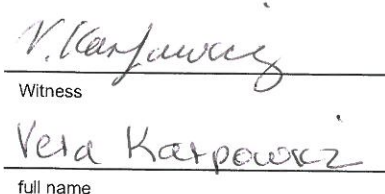 V. Karpowicz
Witness
Vera Karpowicz
full name